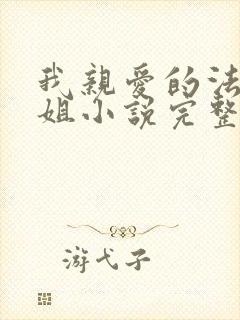 我親愛的法
姐小說完整
游弋子